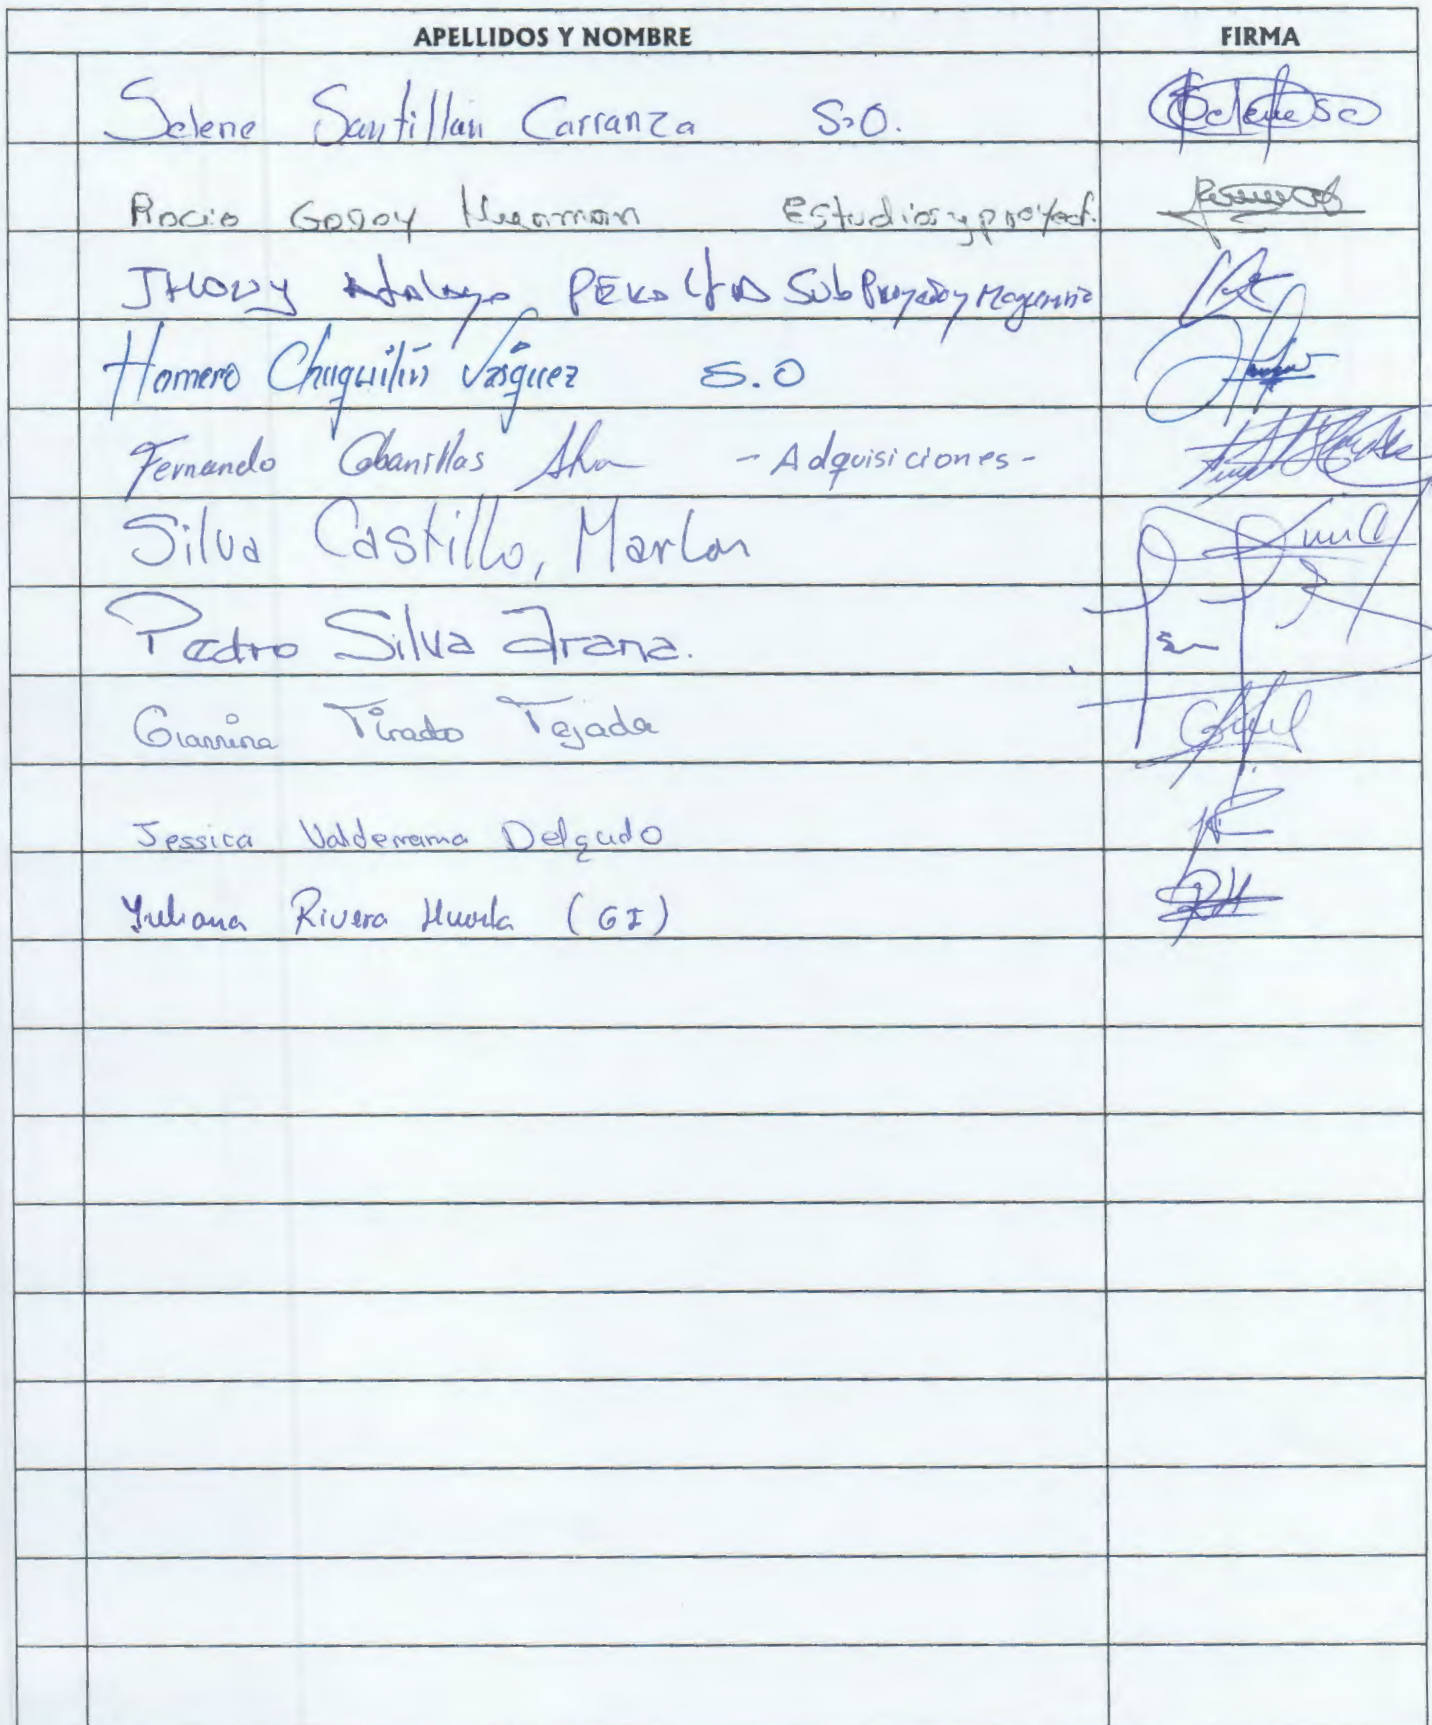 APELLIDOS Y NOMBRE FIRMA
Selene Santillán Carranza S.O.
Rocio Godoy Huaman Estudios y proyect.
JHONY Atalaya Sub
Homero Chuquilín Vásquez S.O
Fernando Cabanillas - Adquisiciones -
Silva Castillo, Marlon
Pedro Silva Arana.
Giannina Tirado Tejada
Jessica Valderrama Delgado
Yuliana Rivera Huerta (GI)